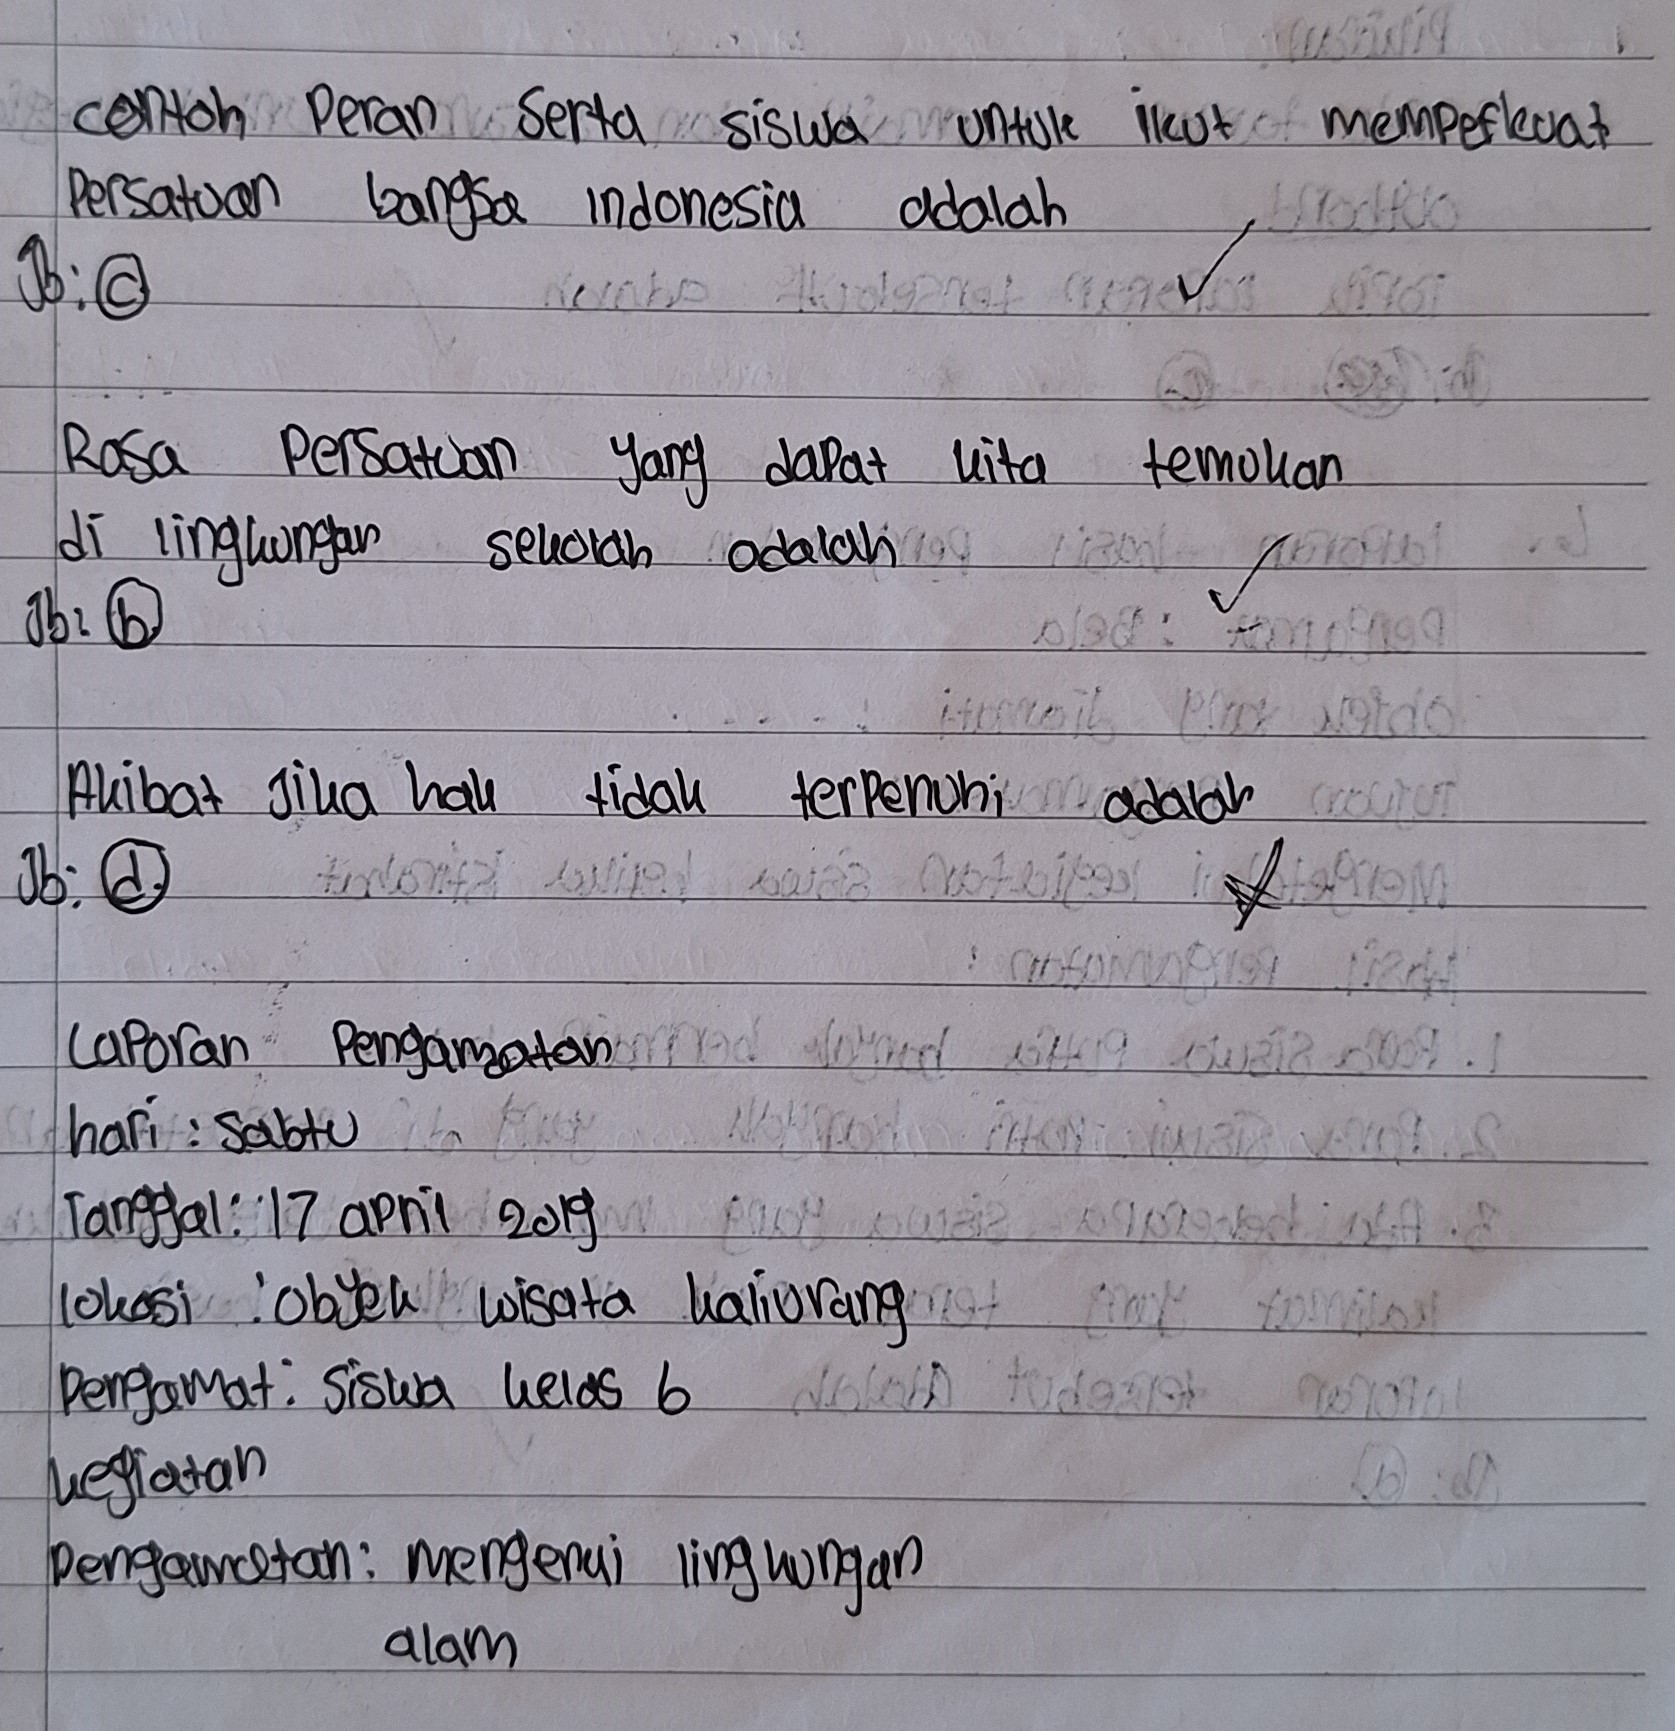 contoh Peran Serta siswa untuk ikut memperkuat
Persatuan bangsa indonesia adalah
Jb: c
Rasa Persatuan yang dapat kita temukan
di lingkungan sekolah adalah
Jb: b
Akibat Jika hak tidak terpenuhi adalah
Jb: d
Laporan Pengamatan
hari: Sabtu
Tanggal: 17 april 2019
lokasi : obyek wisata kaliurang
Pengamat: Siswa kelas 6
kegiatan
Pengamatan: mengenai lingkungan
alam